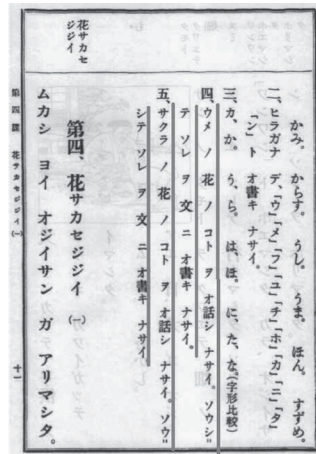 かみ。 からす。 うし。 うま。 ほん。 すずめ。
二、ヒラガナ デ、「ウ」「メ」「フ」「ユ」「チ」「ホ」「カ」「ニ」「タ」
「ン」ト オ書キ ナサイ。
三、カ、か。 う、ら。 は、ほ。 に、た、な。(字形比較)
四、ウメ ノ 花 ノ コト ヲ オ話シ ナサイ。ソウシ
テ ソレ ヲ 文 ニ オ書キ ナサイ。
五、サクラ ノ 花 ノ コト ヲ オ話シ ナサイ。ソウ
シテ ソレ ヲ 文 ニ オ書キ ナサイ。
第四、花サカセジジイ (一)
ムカシ ヨイ オジイサン ガ アリマシタ。
花サカセ
ジジイ
第四課 花サカセジジイ(一)
十一